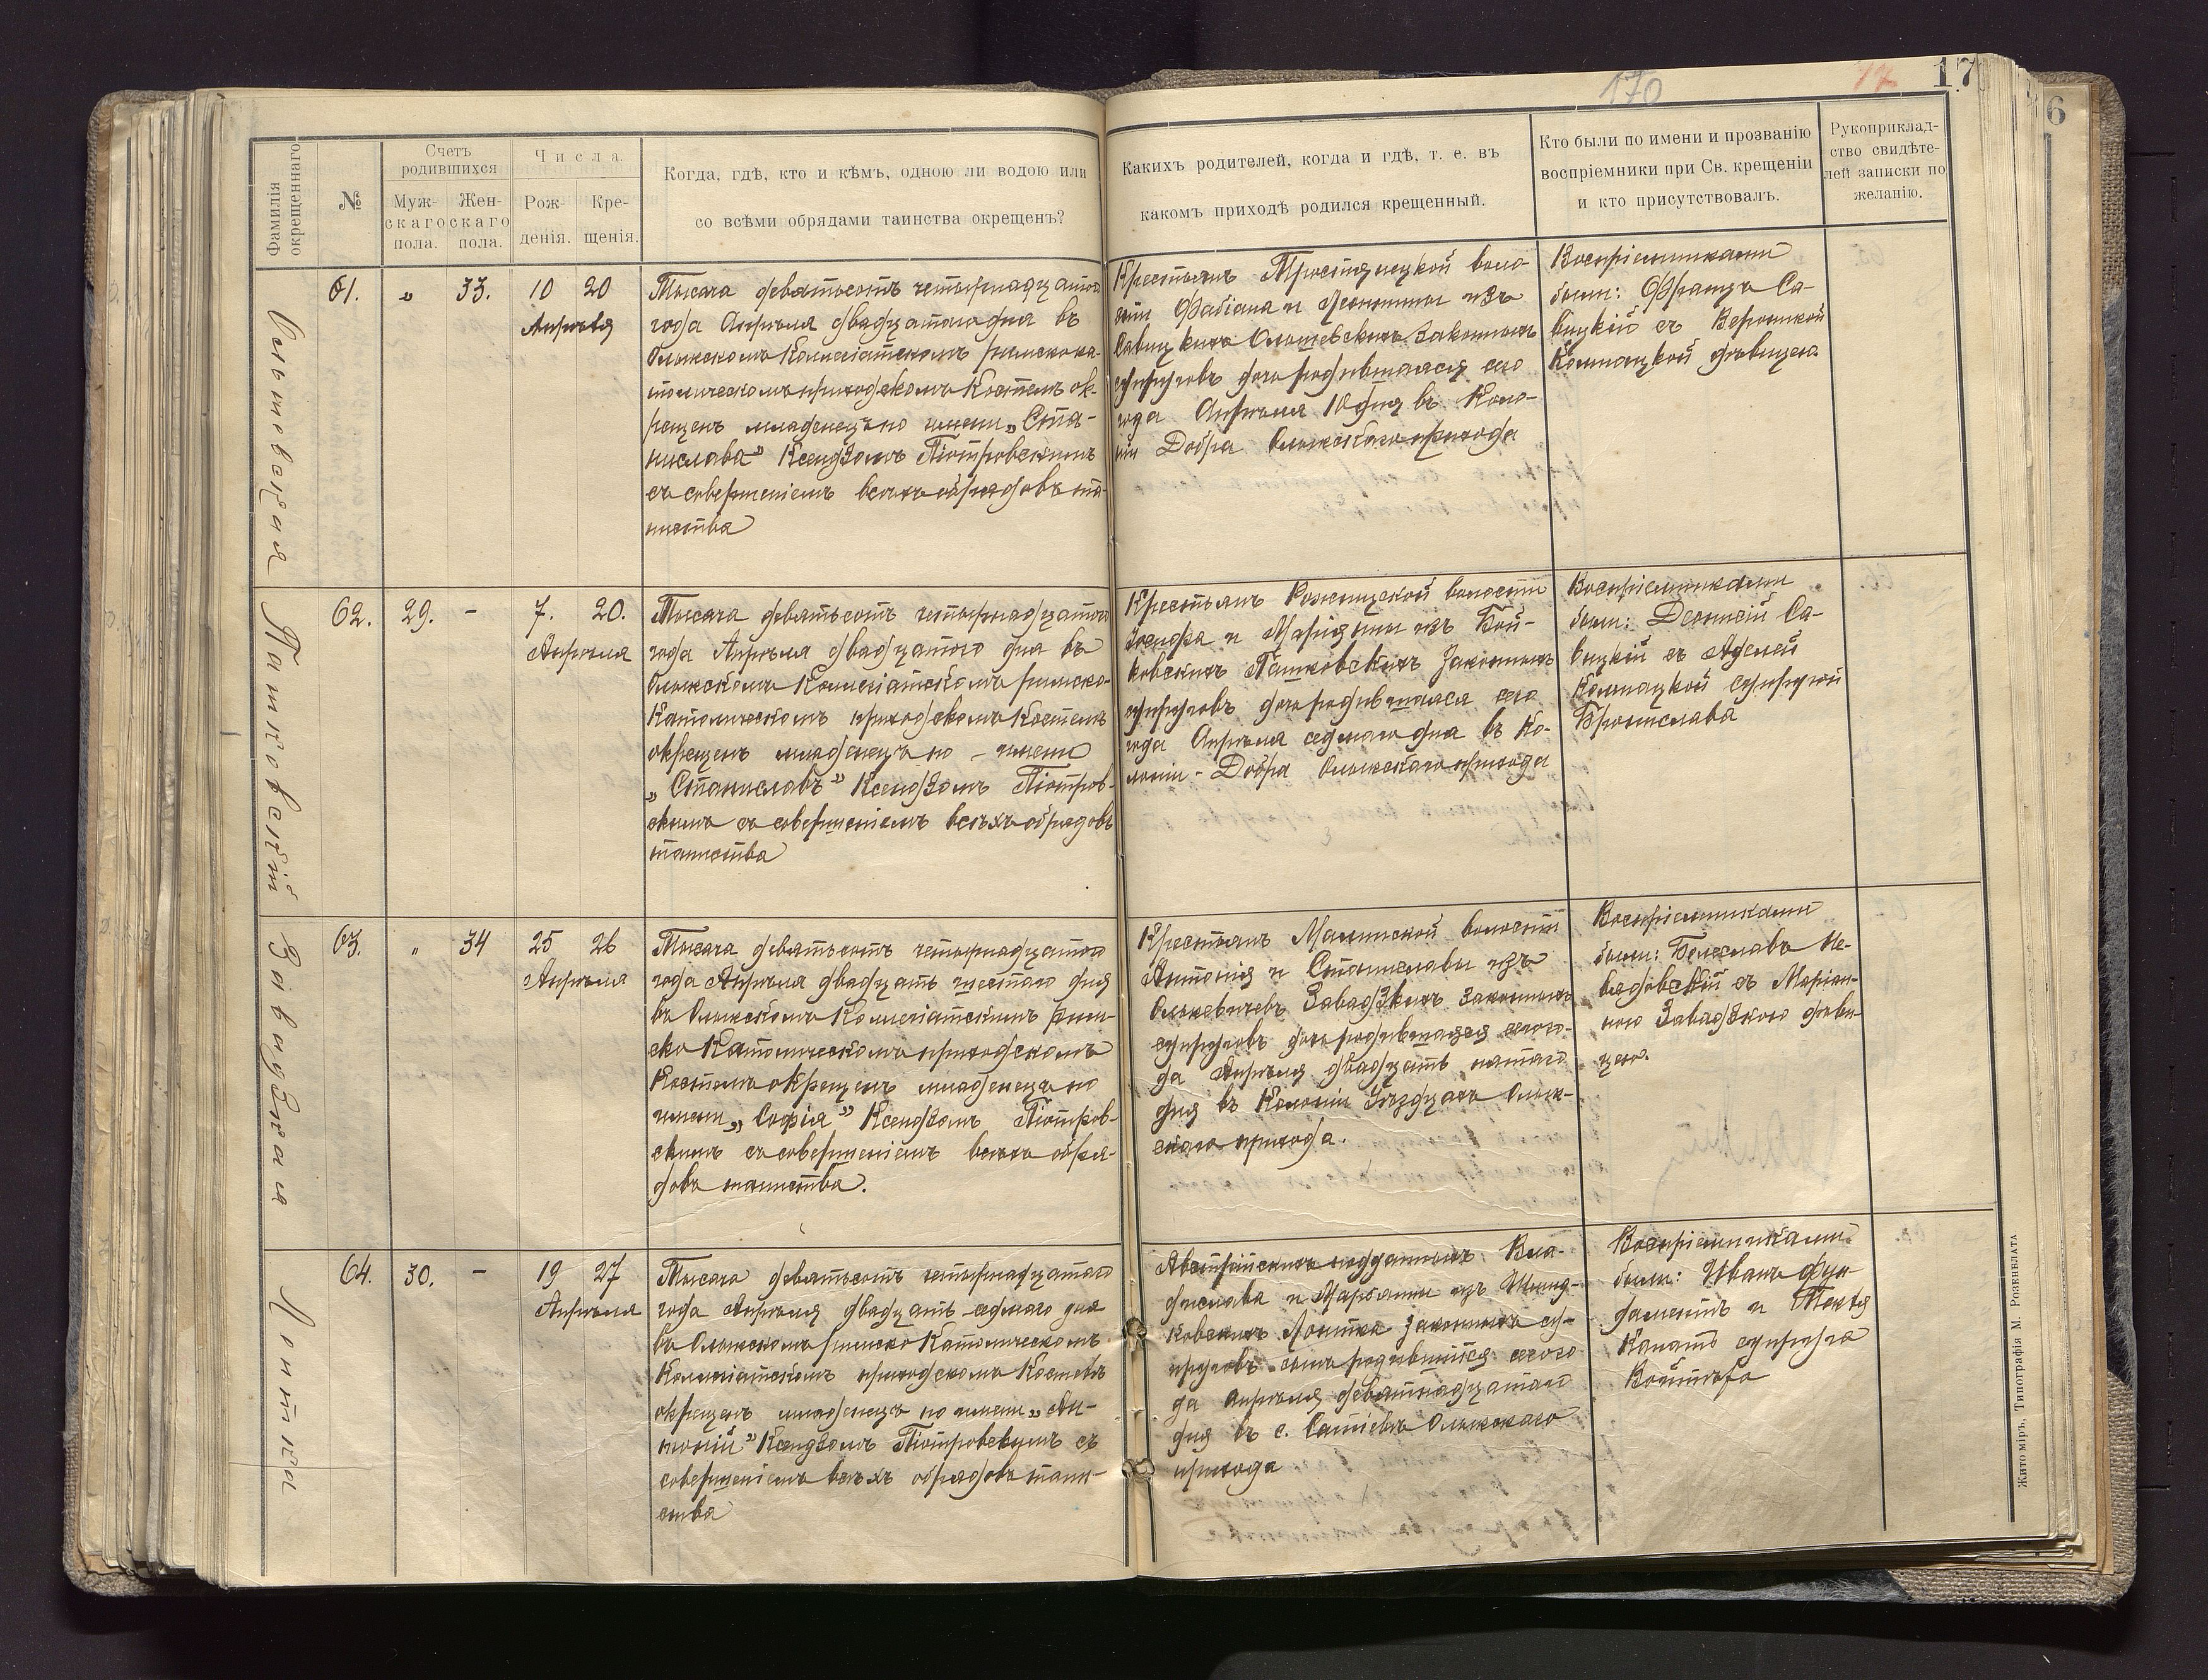 170
17
17
6
Фамилія
окрещеннаго
№
Счетъ
родившихся
Муж-
скаго
пола.
Жен-
скаго
пола.
Числа.
Рож-
денія.
Кре-
щенія.
Когда, гдѣ, кто и кѣмъ, одною ли водою или
со всѣми обрядами таинства окрещенъ?
Какихъ родителей, когда и гдѣ, т. е. въ
какомъ приходѣ родился крещенный.
Кто были по имени и прозванію
воспріемники при Св. крещеніи
и кто присутствовалъ.
Рукоприклад-
ство свидѣте-
лей записки по
желанію.
Ольшовская
61. „ 33. 10 20
Апрѣля
Тысяча девятьсотъ четырнадцатого
года Апрѣля двадцатаго дня въ
Олыкскомъ Коллегіатскомъ римскока-
толическомъ приходскомъ Костелѣ ок-
рещенъ младенецъ по имени „Ста-
нислава" Ксендзомъ Піотровскимъ
съ совершеніемъ всѣхъ обрядовъ та-
инства
Крестьянъ Тростянецкой воло
сти Фабіана и изъ
Савицкихъ законныхъ
супруговъ дочь родившаяся сего
года Апрѣля 10 дня въ Коло-
ніи Добра Олыкскаго прихода
Воспріемниками
были: Францъ Са-
вицкій съ Вероникой
дѣвицею.
Пашковскій
62. 29. - 7. 20.
Апрѣля
Тысяча девятьсотъ четырнадцатого
года Апрѣля двадцатого дня въ
Олыкскомъ Коллегіатскомъ римско-
Католическомъ приходскомъ Костелѣ
окрещенъ младенецъ по - имени
„Станиславъ" Ксендзомъ Піотров-
скимъ съ совершеніемъ всѣхъ обрядовъ
таинства
Крестьянъ Рожищской волости
Іосифа и Маріянны изъ Бой-
ковскихъ Пашковскихъ законныхъ
супруговъ дочь родившаяся сего
года Апрѣля седмаго дня въ Ко-
лоніи - Добра Олыкскаго прихода
Воспріемниками
были: Діонисій Са-
вицкій съ Аделей
супругой
Бронислава
Завадзкая
63. „ 34 25 26
Апрѣля
Тысяча девятьсотъ четырнадцатого
года Апрѣля двадцать шестого дня
въ Олыкскомъ Коллегіатскимъ рим-
ско Католическомъ приходскомъ
Костелѣ окрещенъ младенецъ по
имени „Софія" Ксендзомъ Піотров-
скимъ съ совершеніемъ всѣхъ обря-
довъ таинства.
Крестьянъ Малинской волости
Антонія и Станиславы изъ
Завадзкихъ законныхъ
супруговъ дочь родившаяся сего го-
да Апрѣля двадцать пятаго
дня въ Колоніи Олык-
скаго прихода.
Воспріемниками
были: Болеславъ Не-
вядовскій съ Маріан-
ною Завадзкою дѣви-
цею.
Лоптка
64. 30. - 19 27
Апрѣля
Тысяча девятьсотъ четырнадцатаго
года Апрѣля двадцать седмаго дня
въ Олыкскомъ римско Католическомъ
Коллегіатскомъ приходскомъ Костелѣ
окрещенъ младенецъ по имени „Ан-
тоній" Ксендзомъ Піотровскимъ съ
совершеніемъ всѣхъ обрядовъ таин-
ства
Австрійскихъ подданныхъ Вла-
дислава и Маріанны изъ
законныхъ су-
пруговъ сынъ родившійся сего го
да Апрѣля девятнадцатаго
дня въ с. Сатіевъ Олыкскаго
прихода
Воспріемниками
были: Иванъ Фун-
даментъ и Текля
супруга
Войтѣха
Житоміръ, Типографія М. Розенблата